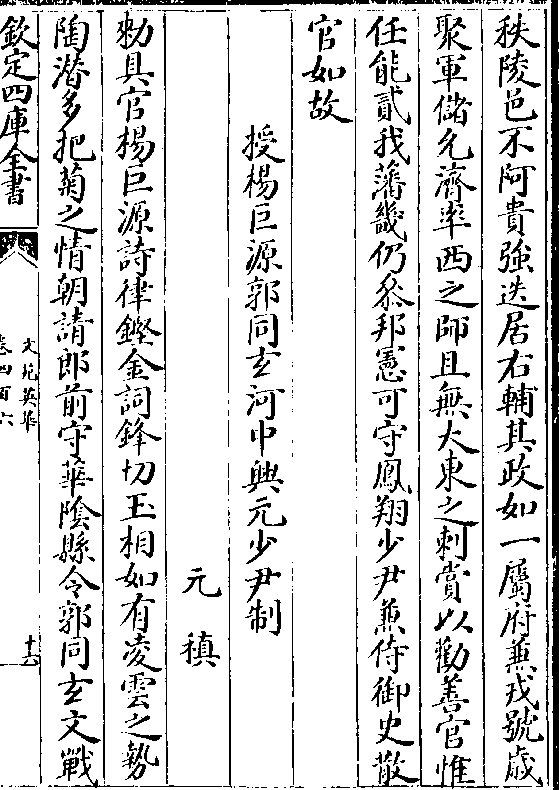 秩陵邑不阿貴強迭居右輔其政如一屬府兼戎號歳
聚軍儲允濟率西之師且無大東之刺賞以勸善官惟
任能貳我藩畿仍叅邦憲可守鳳翔少尹兼侍御史散
官如故
授楊巨源郭同玄河中興元少尹制
元稹
勑具官楊巨源詩律鏗金詞鋒切玉相如有凌雲之勢
陶潜多把菊之情朝請郎前守華隂縣令郭同玄文戰
欽定四庫全書
文苑英華
卷四百六
十六